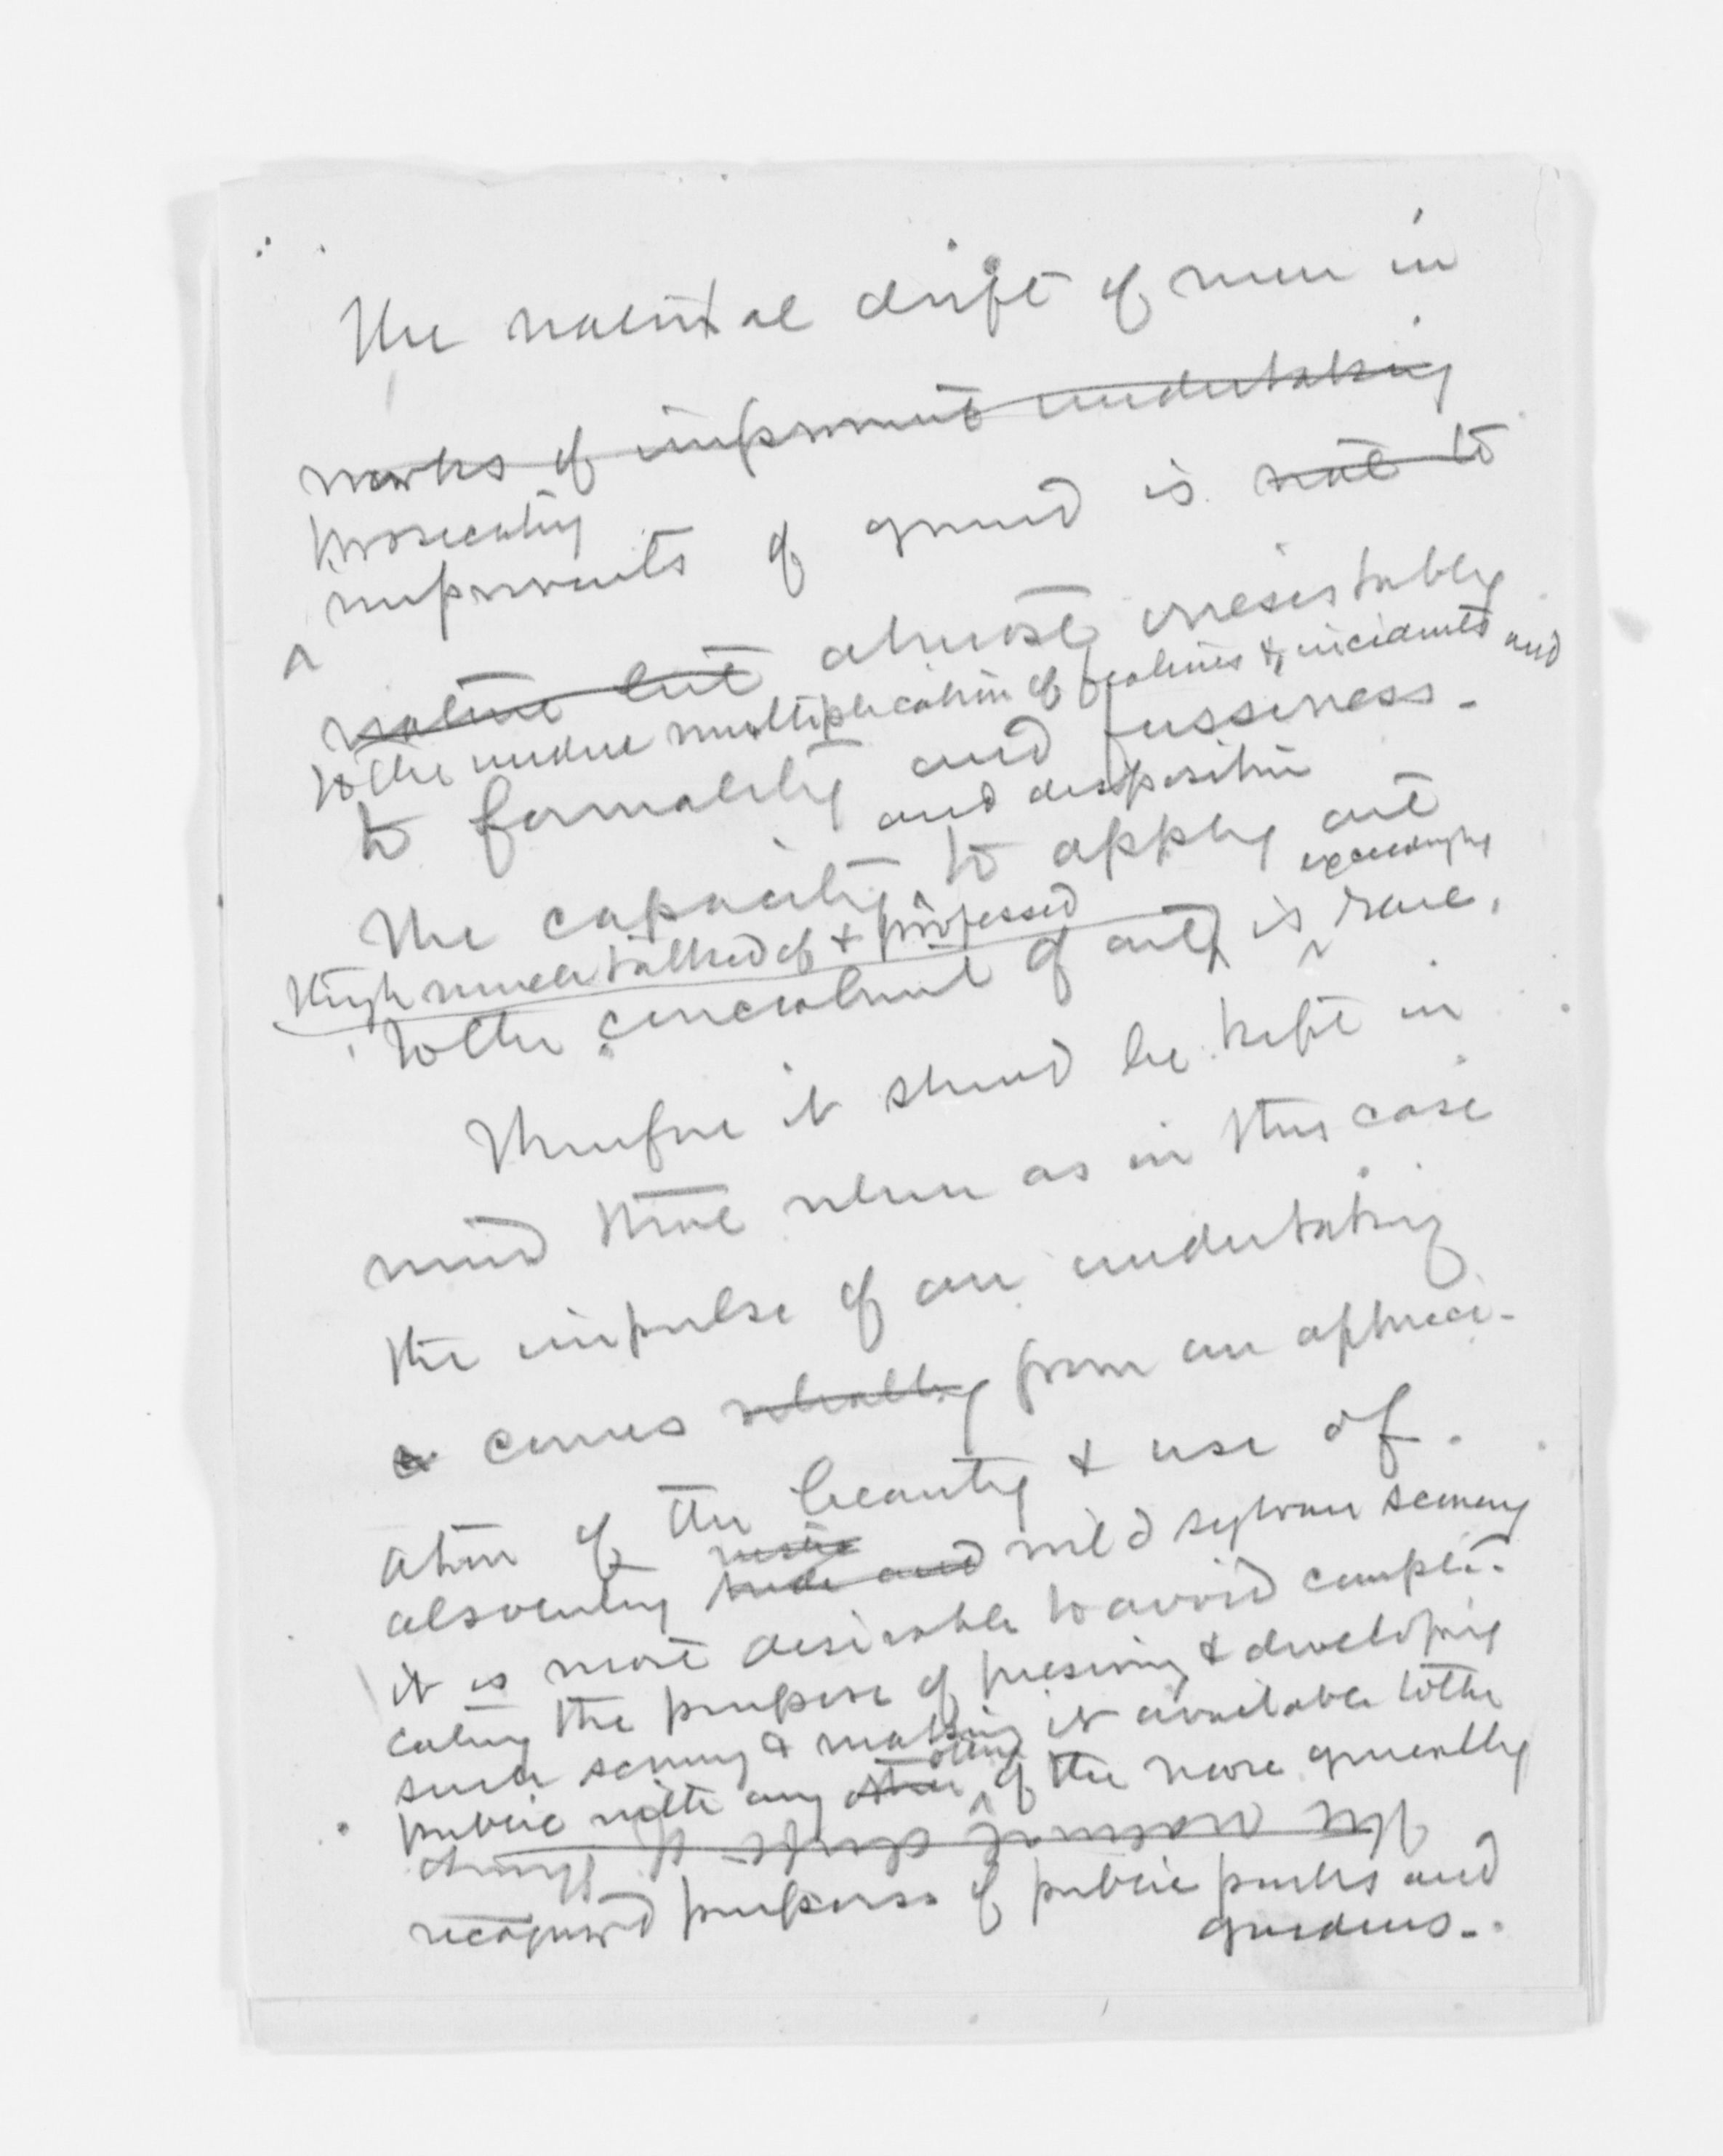 The natural drift of men in
works of improvement undertaking
prosecuting
improvements of ground is not to
nature but almost irresistably
to the undue multiplication of features & incidents and
to formality and fussiness.
and disposition
The capacity to apply art
exceedingly
though much talked of & professed
to the concealment of art, is rare.
Therefore it should be kept in
mind that when as in this case
the impulse of an undertaking
comes from an appreci-
ation of the beauty & use of
already existing wild sylvan scenery
it is most desirable to avoid compli-
cating the purpose of preserving & developing
such scenery & making it available to the
others
public with any other of the more generally
The natural drift of
things
recognized purposes of public parks and
gardens.